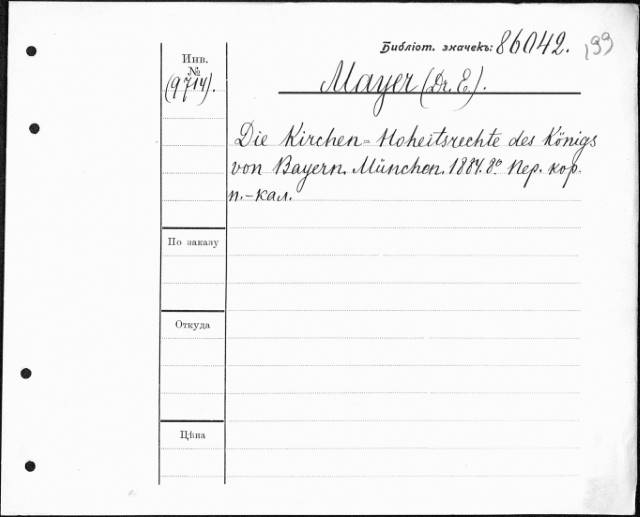 Библіот. значекъ: 86042. 199
Инв.
№
(9714).
Mayer (Dr. E.).
Die Kirchen=Hoheitsrechte des Königs
von Bayern. München. 1884. 8º Пер. кор.
п.-кал.
По заказу
Откуда
Цѣна